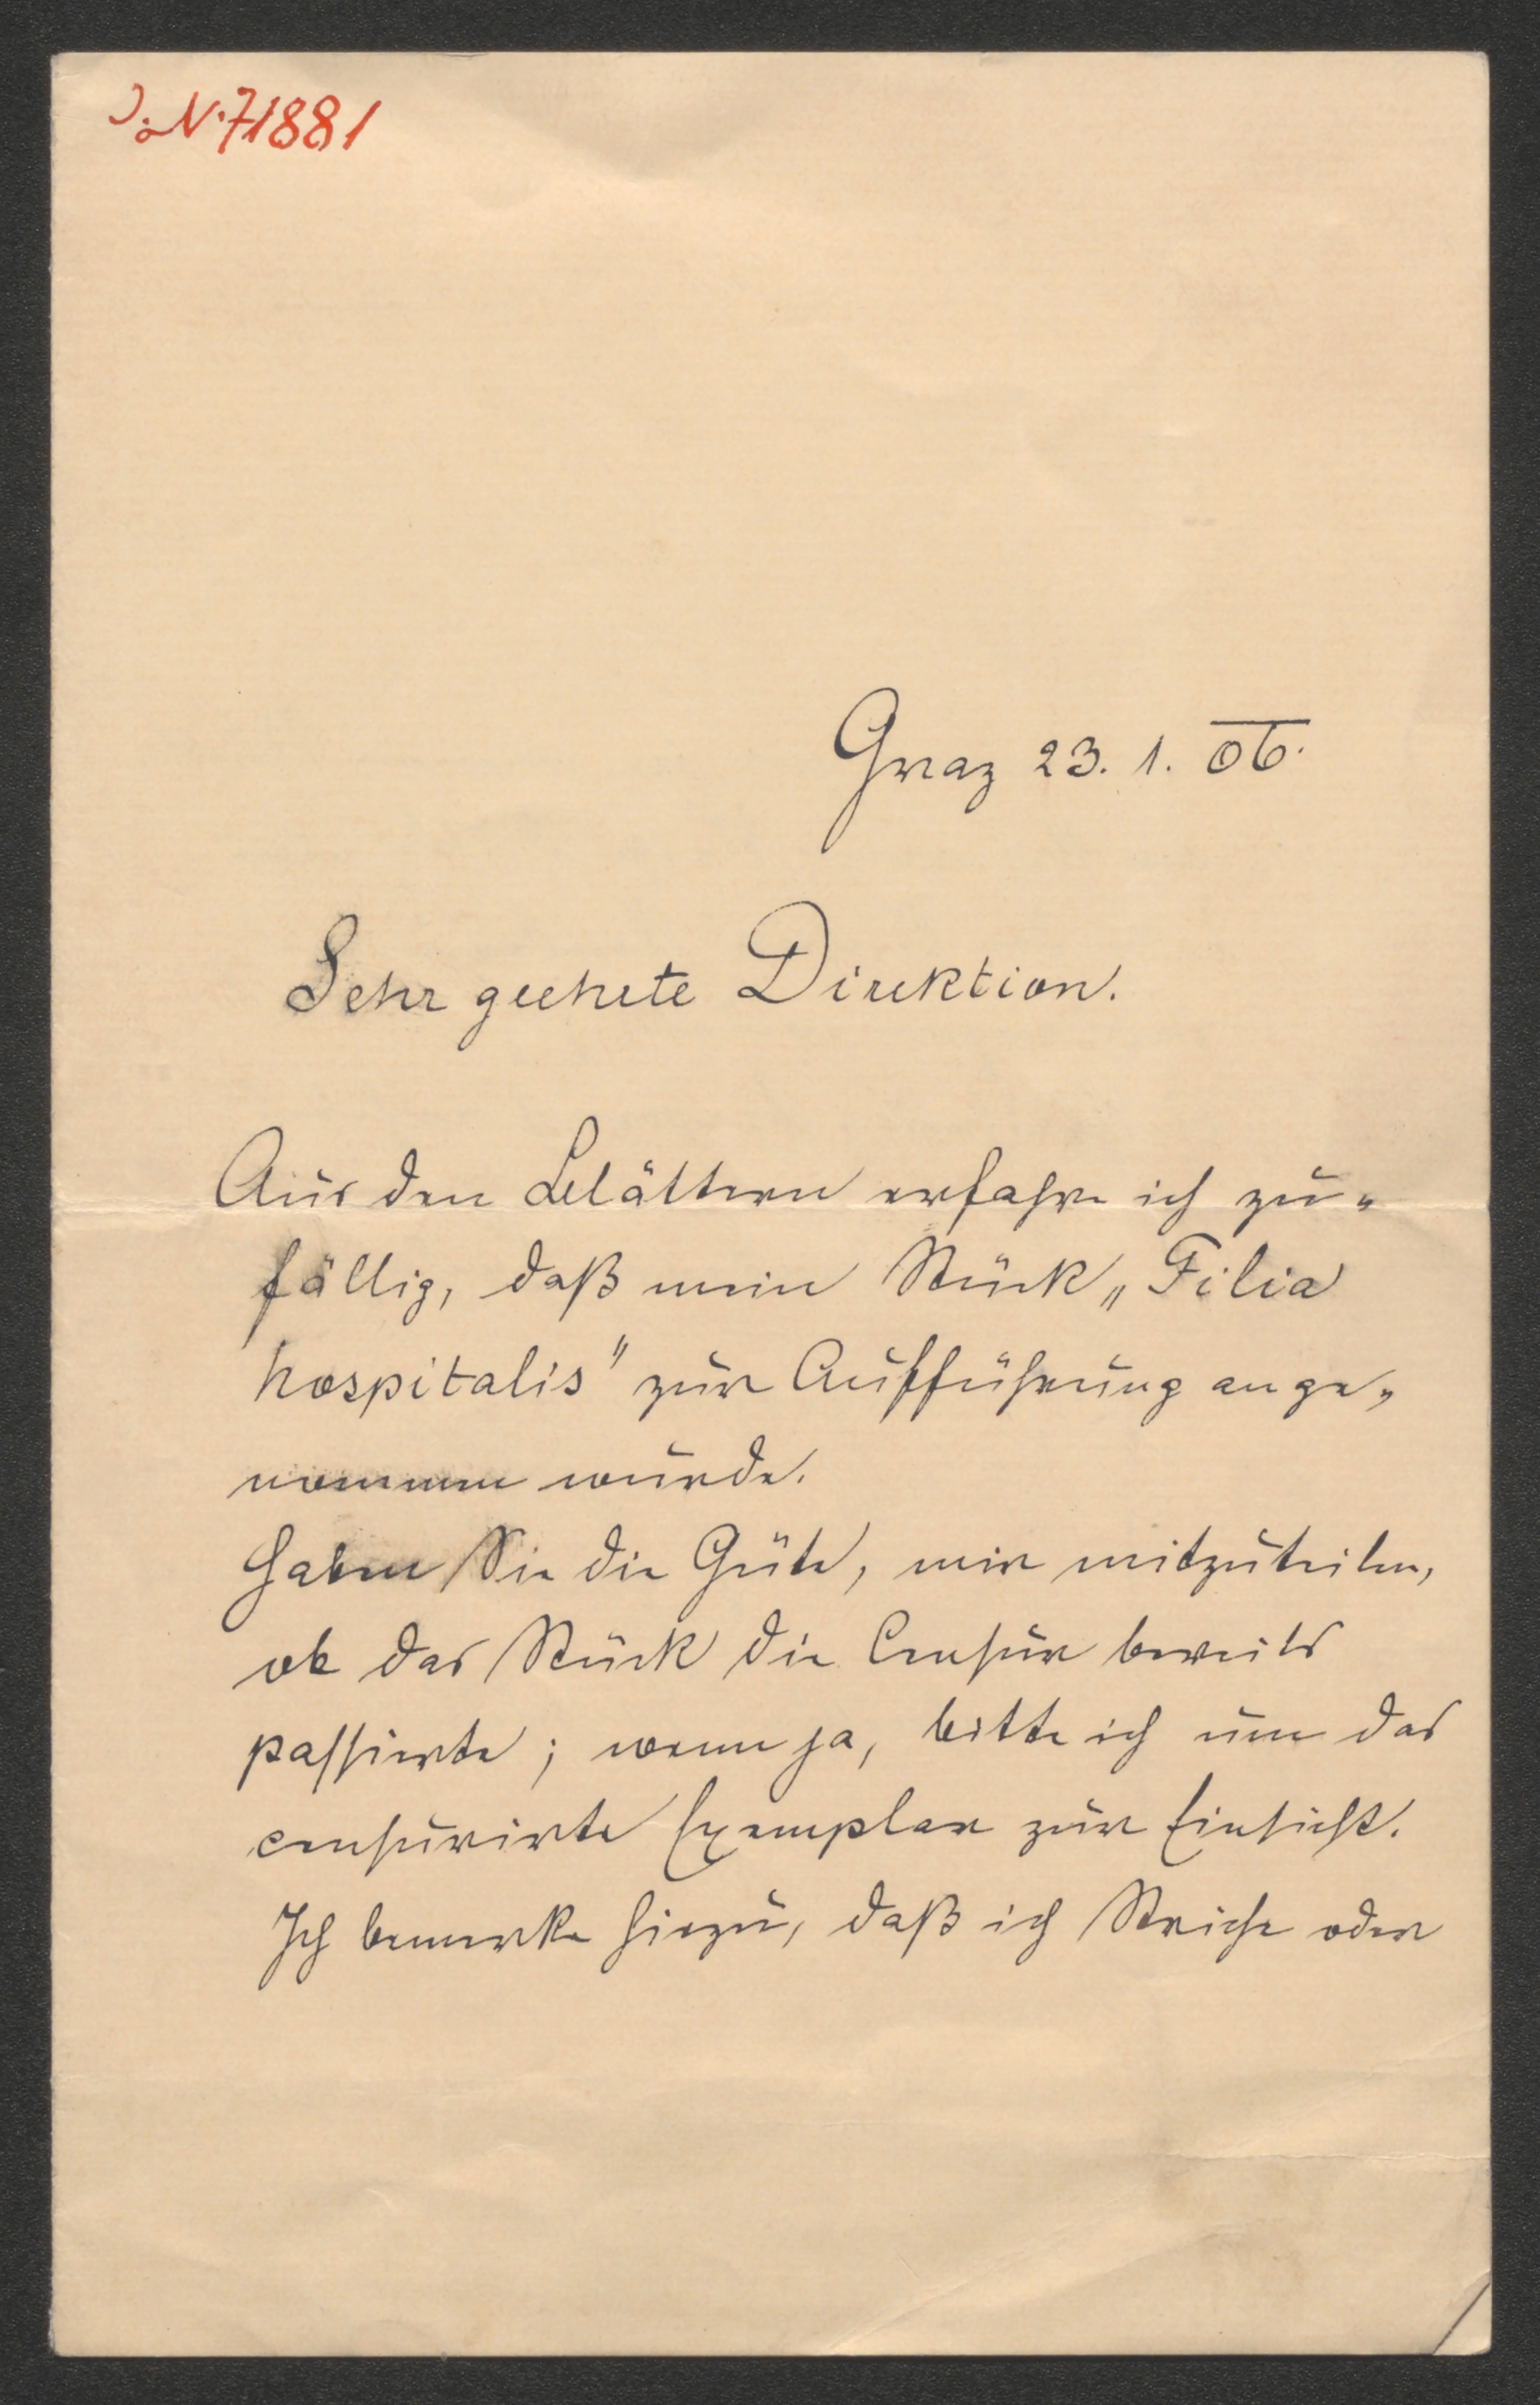 J. N. 71881
Graz 23. 1. 06.
Sehr geehrte Direktion.
Aus den Blättern erfahre ich zu-
fällig, daß mein Stück „Filia
hospitalis" zur Aufführung ange-
nommen wurde.
Haben Sie die Güte, mir mitzuteilen,
ob das Stück die Censur bereits
passierte; wenn ja, bitte ich um das
censurirte Exemplar zur Einsicht.
Ich bemerke hiezu, daß ich Striche oder